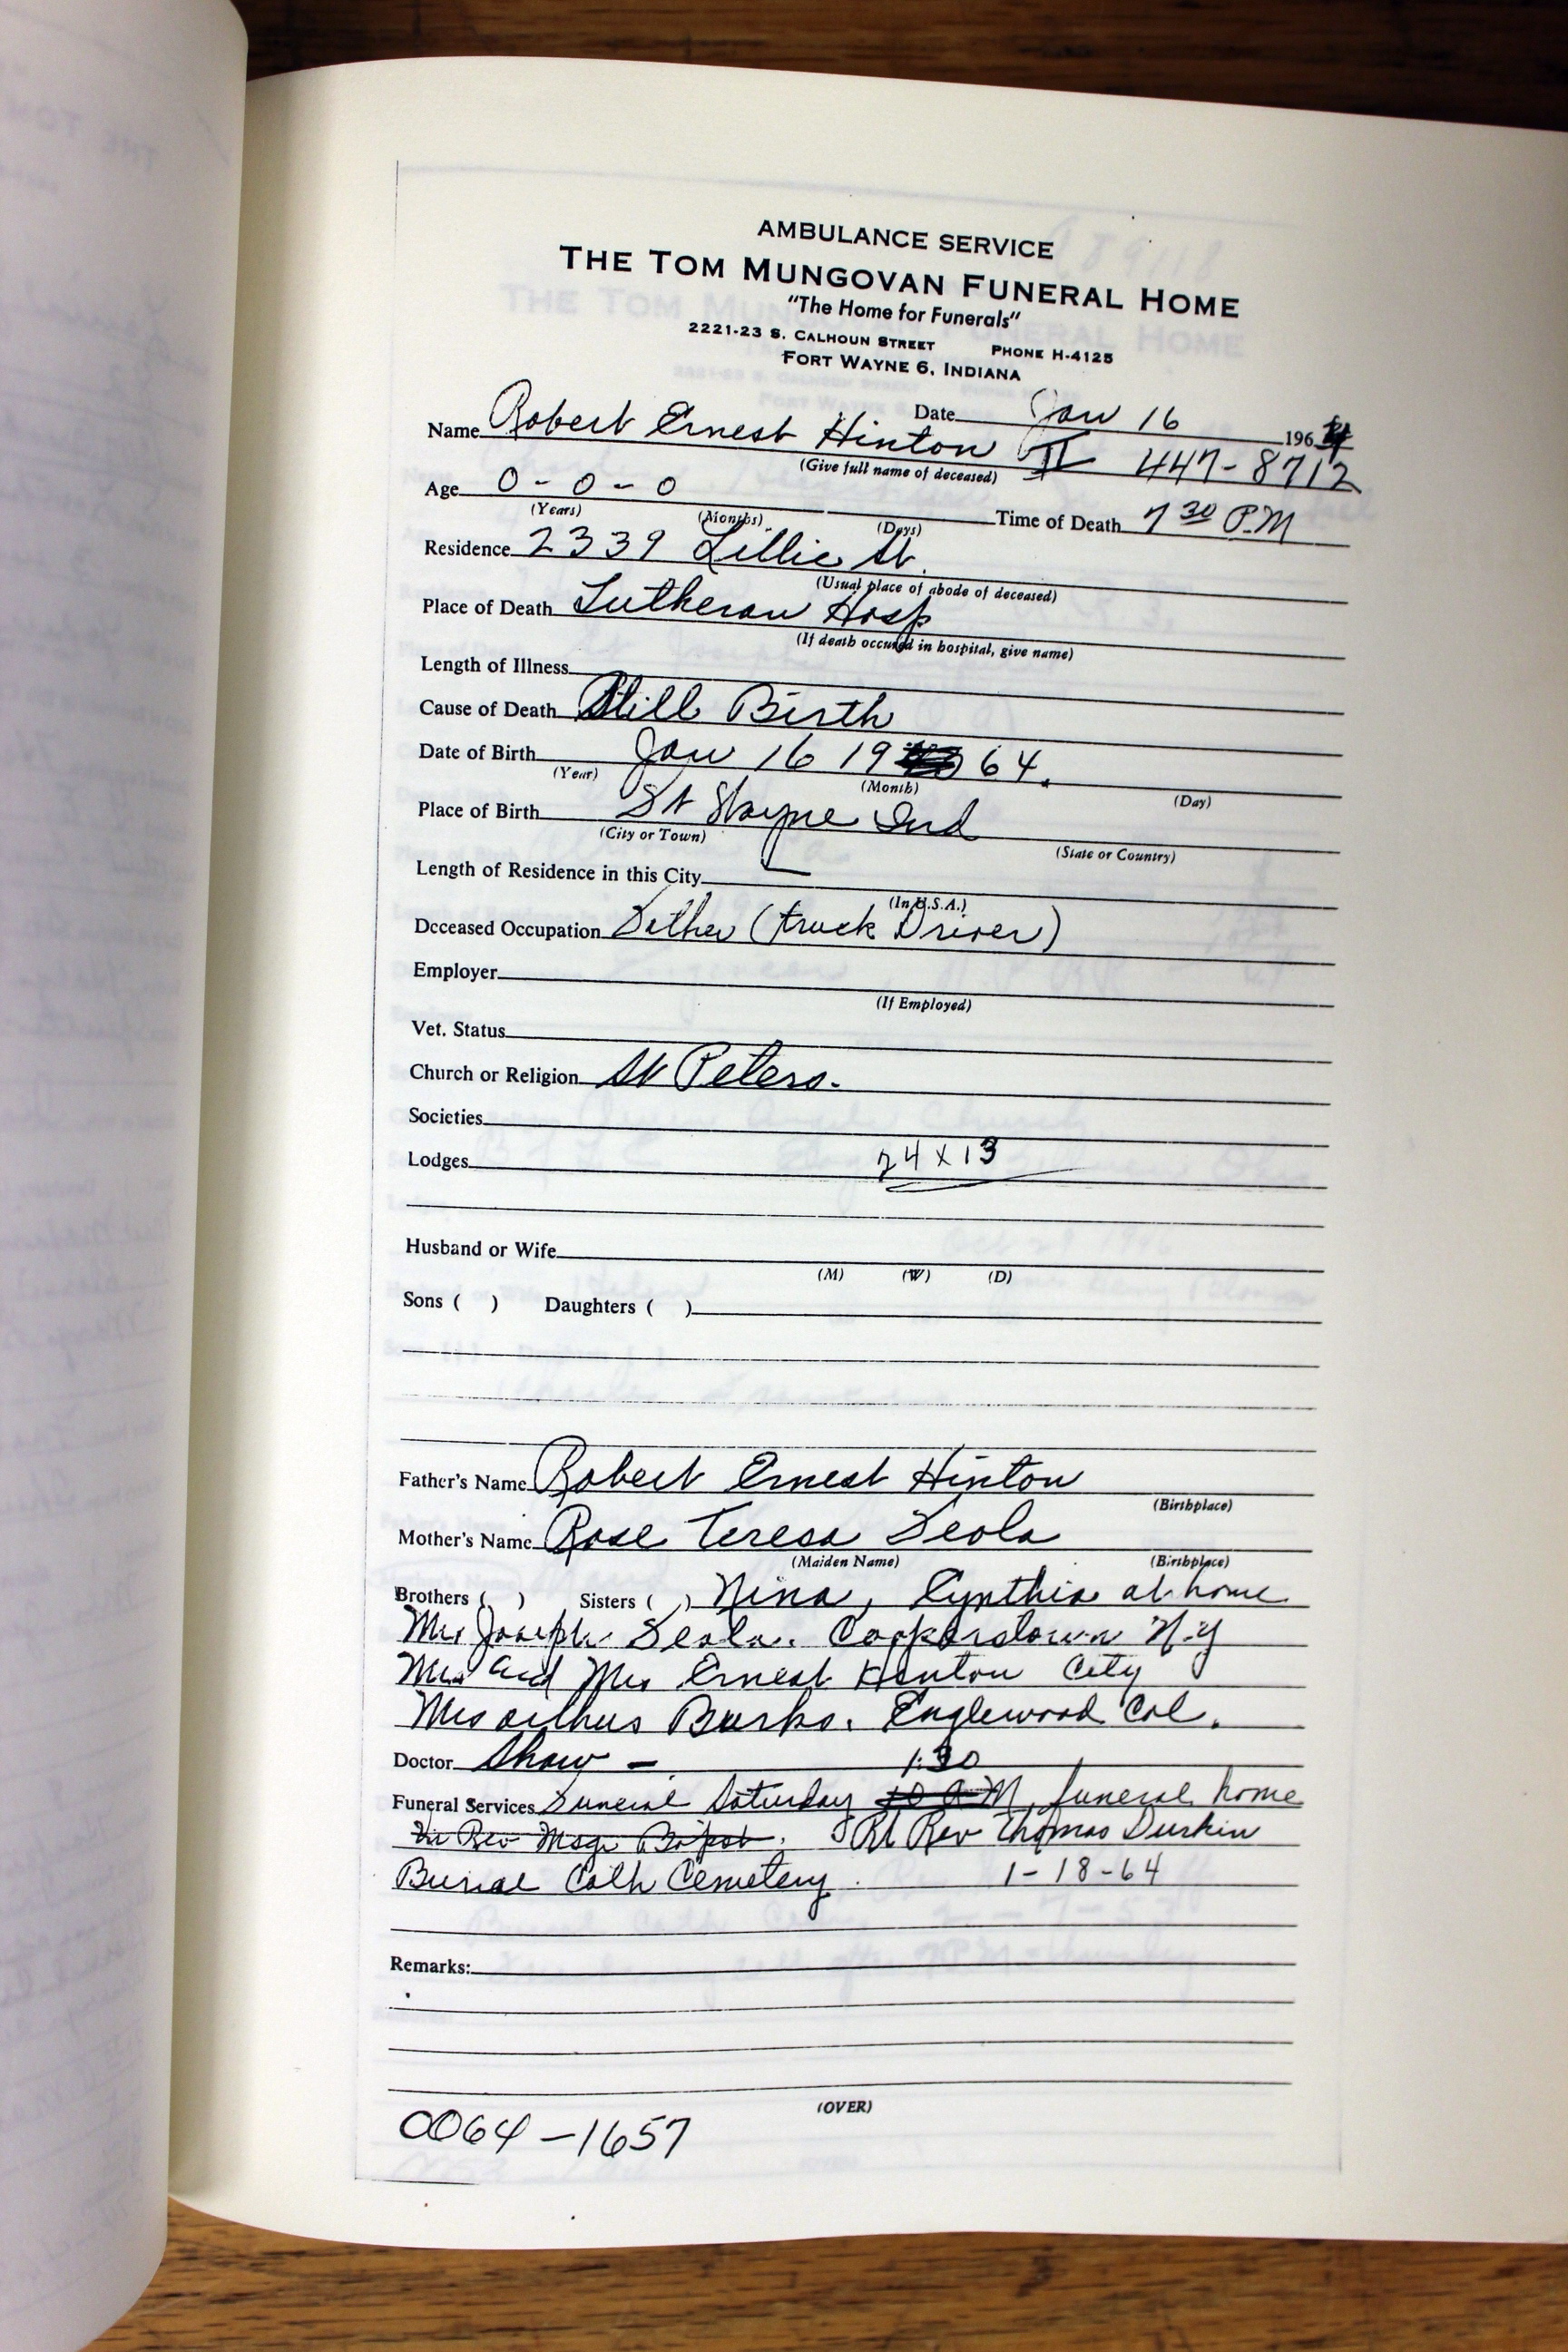 AMBULANCE SERVICE
THE TOM MUNGOVAN FUNERAL HOME
"The Home for Funerals"
2221-23 S. CALHOUN STREET PHONE H-4125
FORT WAYNE 6, INDIANA
Date Jan 16 1964
Name Robert Ernest Hinton II 447-8712
(Give full name of deceased)
Age 0-0-0 Time of Death 7 30 P.M
(Years) (Months) (Days)
Residence 2339 Lillie St.
(Usual place of abode of deceased)
Place of Death Lutheran Hosp
(If death occured in hospital, give name)
Length of Illness
Cause of Death Still Birth
Date of Birth Jan 16 19 64.
(Year) (Month) (Day)
Place of Birth Ft Wayne Ind
(City or Town) (State or Country)
Length of Residence in this City
(In U.S.A.)
Deceased Occupation Father (truck Driver)
Employer
(If Employed)
Vet. Status
Church or Religion St Peters.
Societies
Lodges 24 x 13
Husband or Wife
(M) (W) (D)
Sons ( ) Daughters ( )
Father's Name Robert Ernest Hinton
(Birthplace)
Mother's Name Rose Teresa Feola
(Maiden Name) (Birthplace)
Brothers ( ) Sisters ( ) Nina, Cynthia at home
Joseph Feola. Cooperstown N.Y
and Mrs Ernest Hinton City
Mrs Burks. Englewood Col.
Doctor Shaw - 1:30
Funeral Services Funeral Saturday 10 A M, funeral home
Rev Msgr Bapst. Rt Rev Thomas Durkin
Burial Cath Cemetery. 1-18-64
Remarks:
(OVER)
0064-1657